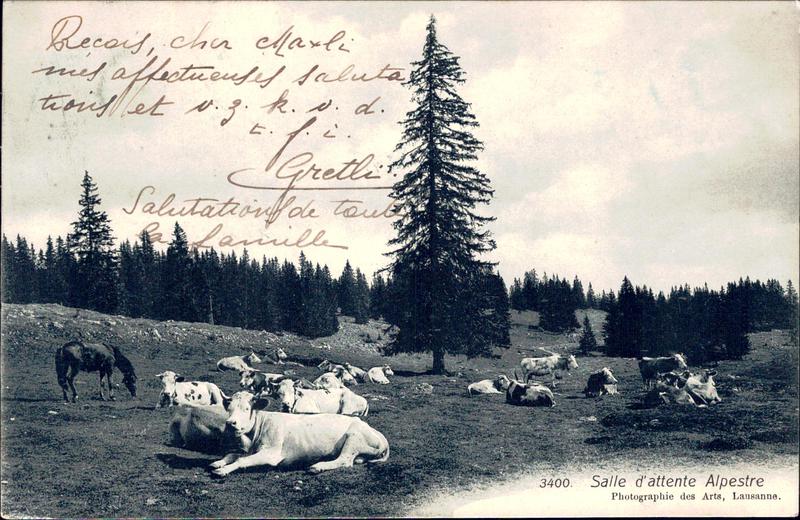 Reçois, cher Maxli
mes affectueuses saluta
tions et v. z. k. v. d.
t. f. i.
Gretli
Salutations de toute
la famille
3400. Salle d'attente Alpestre
Photographie des Arts, Lausanne.